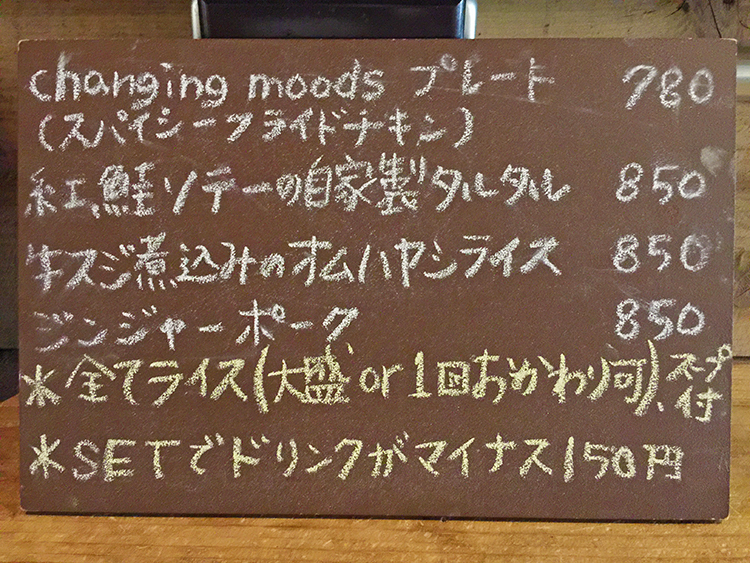 changing moods プレート 780
(スパイシーフライドチキン)
紅鮭ソテーの自家製タルタル 850
牛スジ煮込みのオムハヤシライス 850
ジンジャーポーク 850
※全てライス(大盛 or 1回おかわり可)、スープ付
※SETでドリンクがマイナス150円